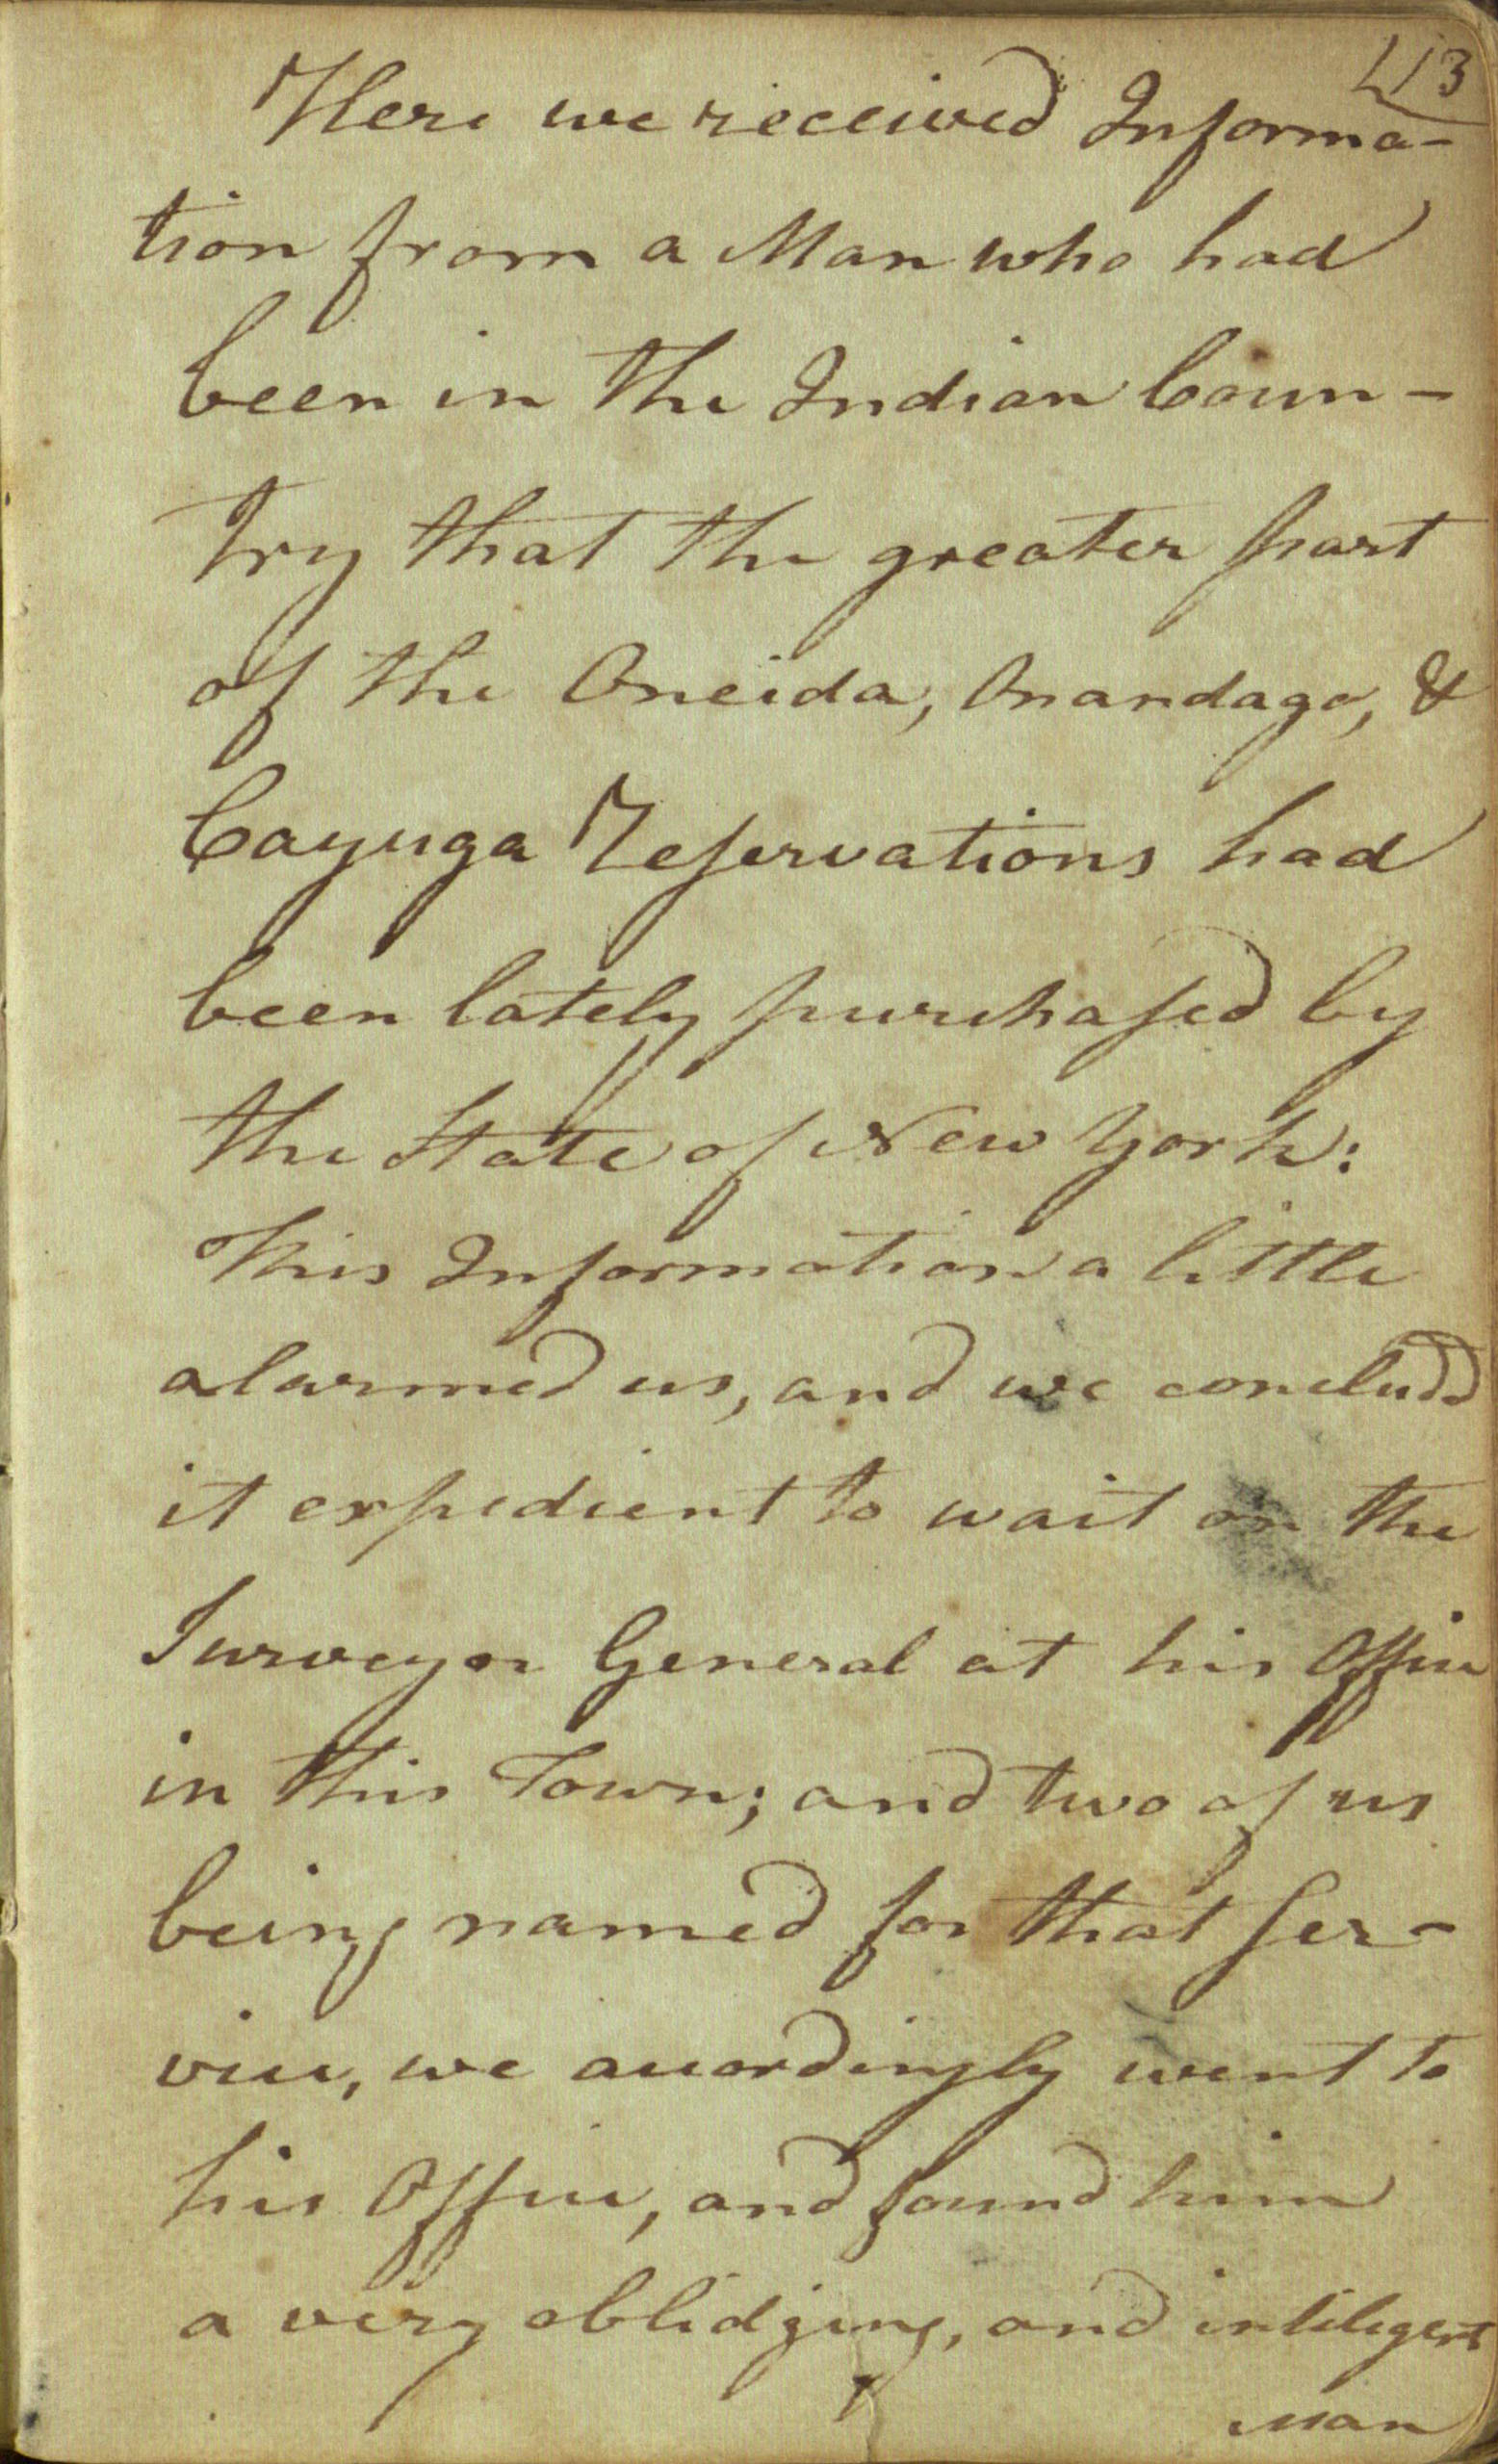 43
Here we received Informa-
tion from a Man who had
been in the Indian Coun-
try that the greater part
of the Oneida, Onandago, &
Cayuga Reservations had
been lately purchased by
the State of New York:
This Information a little
alarmed us, and we concludd
it expedient to wait on the
Surveyor General at his Office
in this Town; and two of us
being named for that ser-
vice, we accordingly went to
his Office, and found him
a very oblidging, and intiligent
man